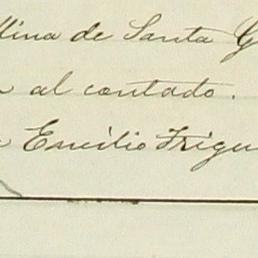 llina de Santa G
al contado.
Emilio Frigu